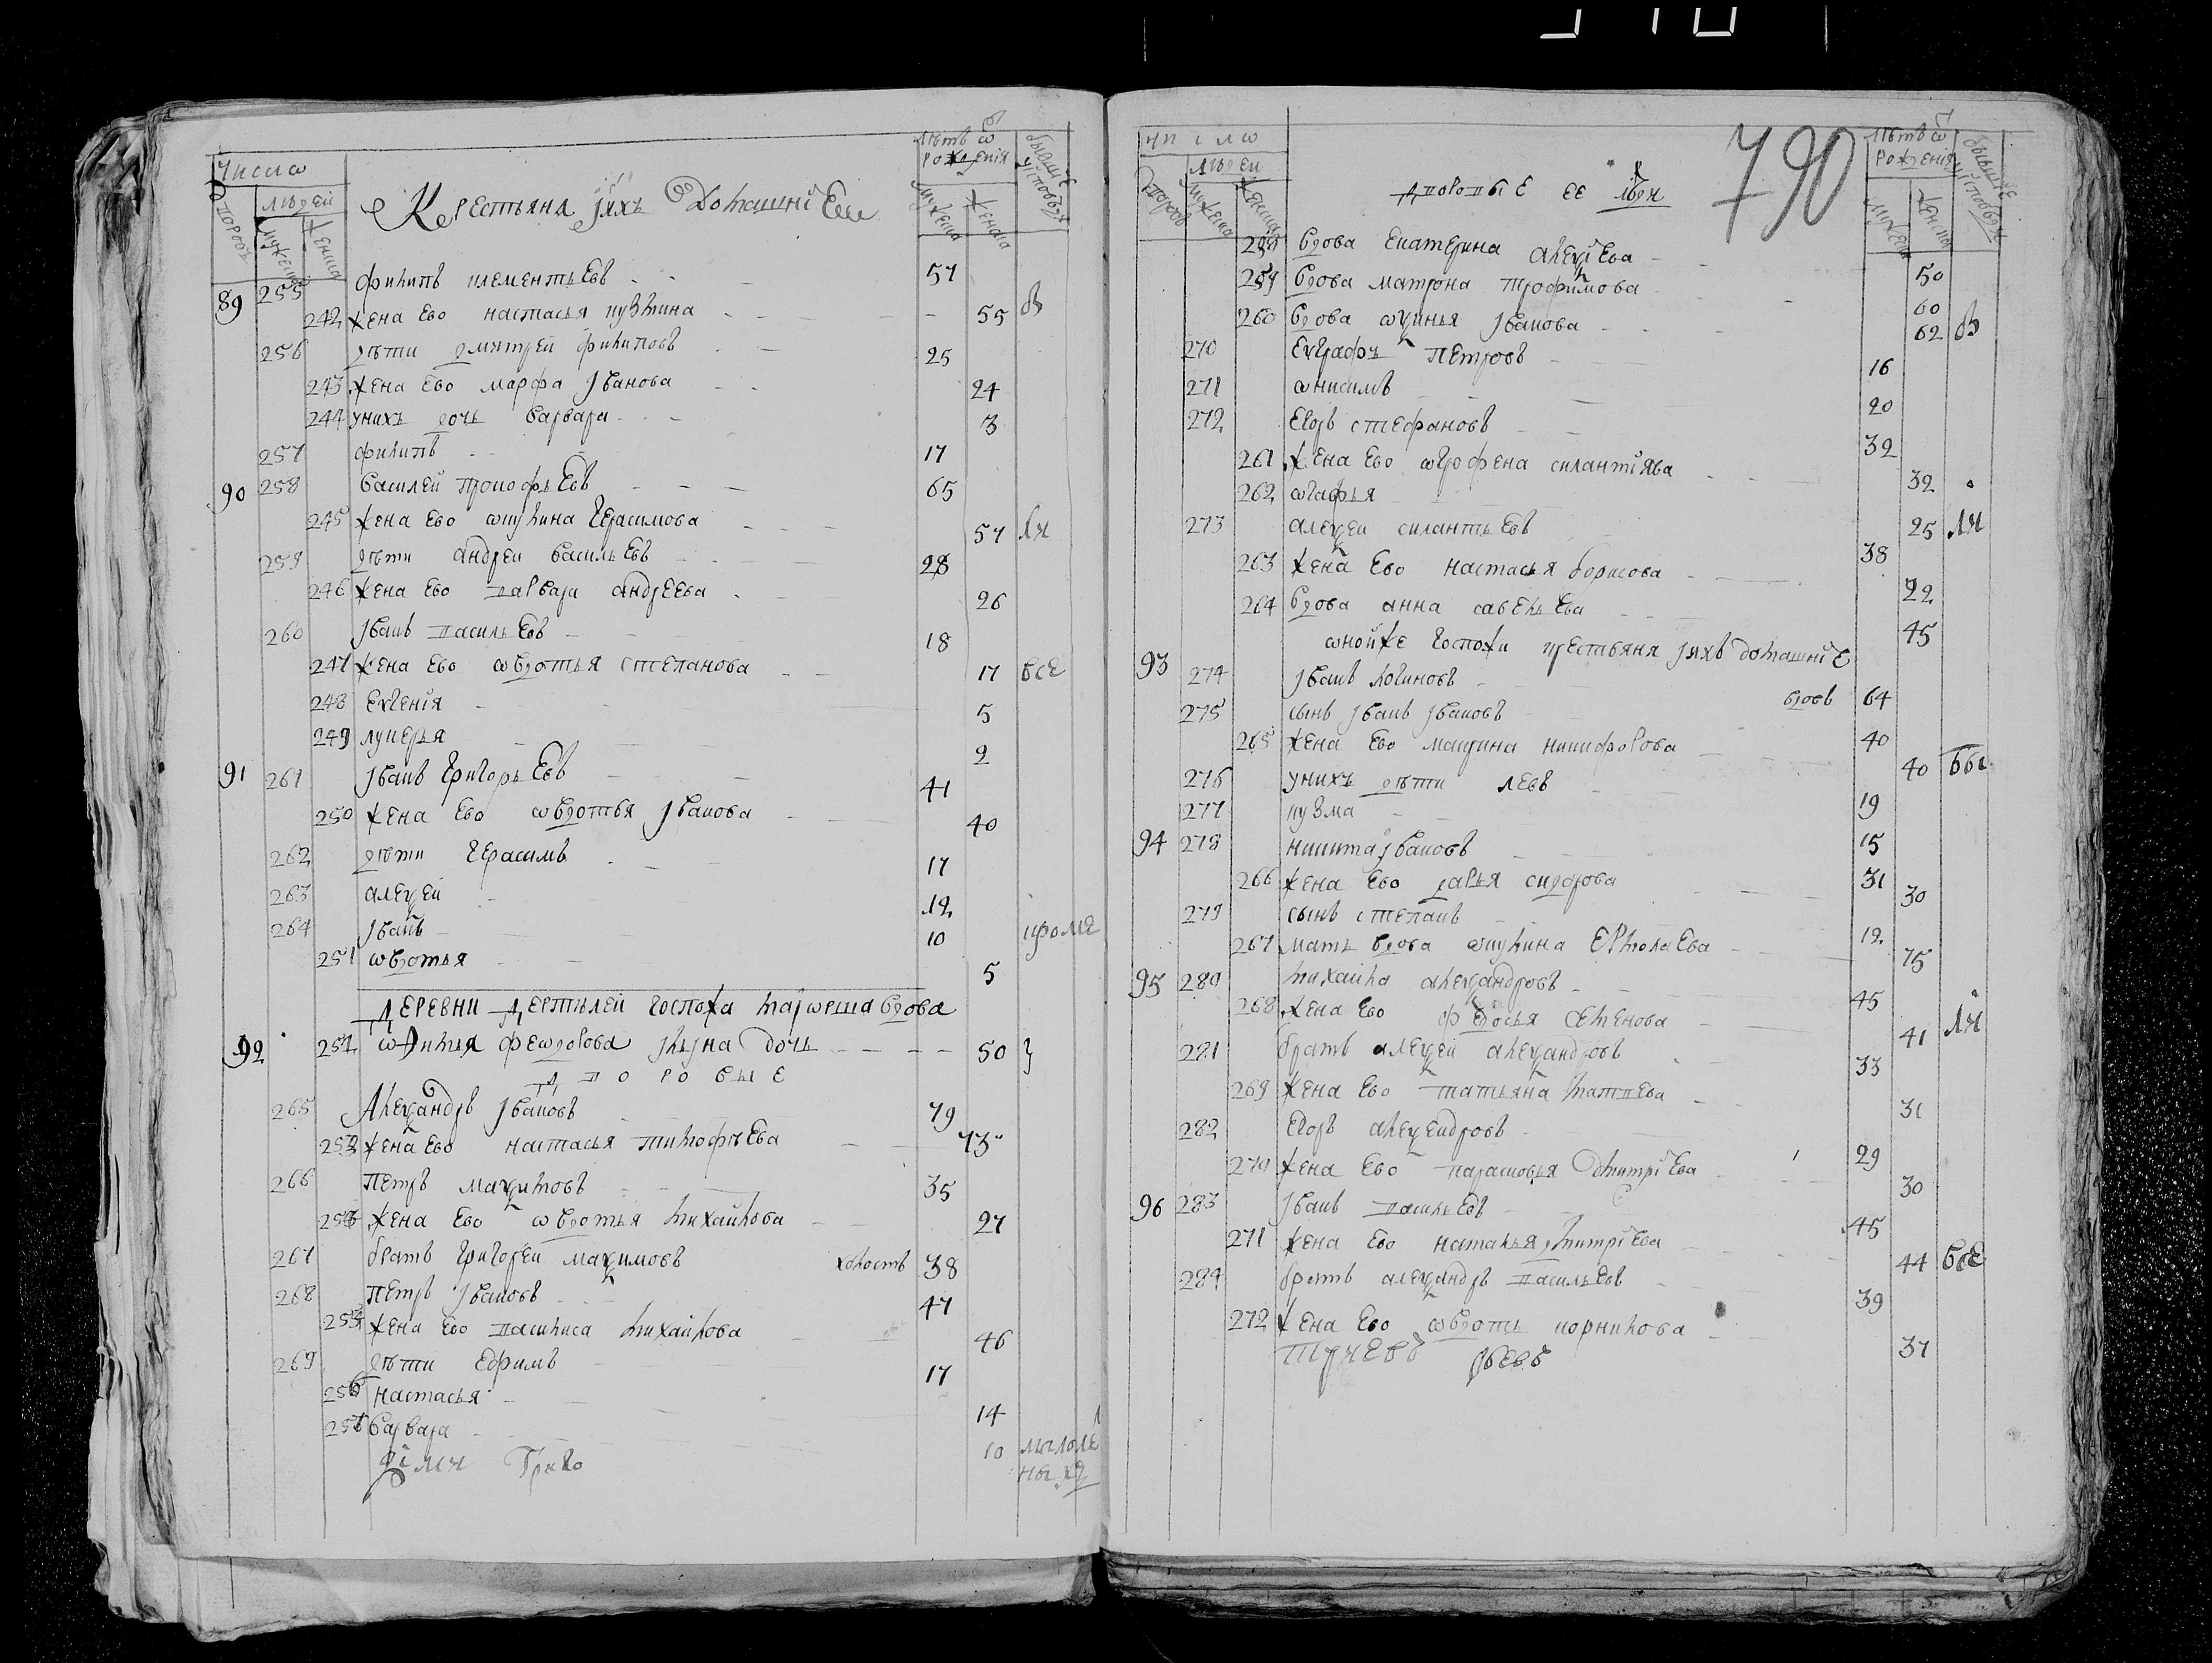 Числа
Дворовъ
Людей
мужеска
женска
Крестьяня и ихъ Домашнiеи
Лѣтъ ѿ рожденiя
мужеска
женска
бывшие у исповеди
89 255 филипъ клементьевъ 57
242 жена ево настасья кузмина 55 в
256 дѣти дмитрей филиповъ 25
243 жена ево марфа iванова 24
244 у нихъ дочь варвара 3
257 филипъ 17
90 258 василей прокофьевъ 65
245 жена ево акулина герасимова 57
259 дѣти андреи васильевъ 28
246 жена ево варвара андреева 26
260 iванъ васильевъ 18
247 жена ево авдотья степанова 17 все
248 евгенiя 5
249 лукерья 2
91 261 iванъ григорьевъ 41
250 жена ево авдотья iванова 40
262 дѣти герасимъ 17
263 алеѯей 12
264 iванъ 10 кроме
251 авдотья 5
Деревни Дертилей госпожа вдова
92 252 федорова дочь 50
Дворовые
265 Алеѯандръ iвановъ 79
253 жена ево настасья тимофѣева 73
266 Петръ маѯимовъ 35
254 жена ево авдотья михайлова 27
267 братъ григорей маѯимовъ холостъ 38
268 Петръ iвановъ 47
255 жена ево василиса михайлова 46
269 дѣти ефимъ 17
256 настасья 14
257 варвара 10 малоленыхъ
Григо
790
Числа
Дворовъ
Людей
мужеска
женска
Дворовые ее люди
Лѣтъ ѿ рожденiя
мужеска
женска
бывшие у исповеди
258 вдова екатерина алеѯiева 50
259 вдова матрона трофимова 60
260 вдова аѯинья iванова 62 в
270 евграфъ петровъ 16
271 анисимъ 20
272 егоръ стефановъ 32
261 жена ево аграфена силантiява 32
262 агафья 25
273 алеѯеи силантьевъ 38
263 жена ево настасья борисова 22
264 вдова анна савельева 45
оной же госпожи крестьяня и ихъ домашнiе
93 274 iванъ логиновъ вдовъ 64
275 сынъ iванъ iвановъ 40
265 жена ево никифорова 40
276 у нихъ дѣти левъ 19
277 кузма 15
94 278 никита iвановъ 31
266 жена ево дарья сидорова 30
279 сынъ степанъ 12
267 мать вдова акулина ермолаева 75
95 280 михайла алеѯандровъ 45
268 жена ево федосья семенова 41
281 братъ алеѯей алеѯандровъ 33
269 жена ево татьяна матвева 31
282 егоръ алеѯендровъ 29
270 жена ево парасковья дмитрiева 30
96 283 iванъ васильевъ 45
271 жена ево наталья дмитрiева 44 все
284 братъ алеѯандръ васильевъ 39
272 жена ево авдоть корнилова 37